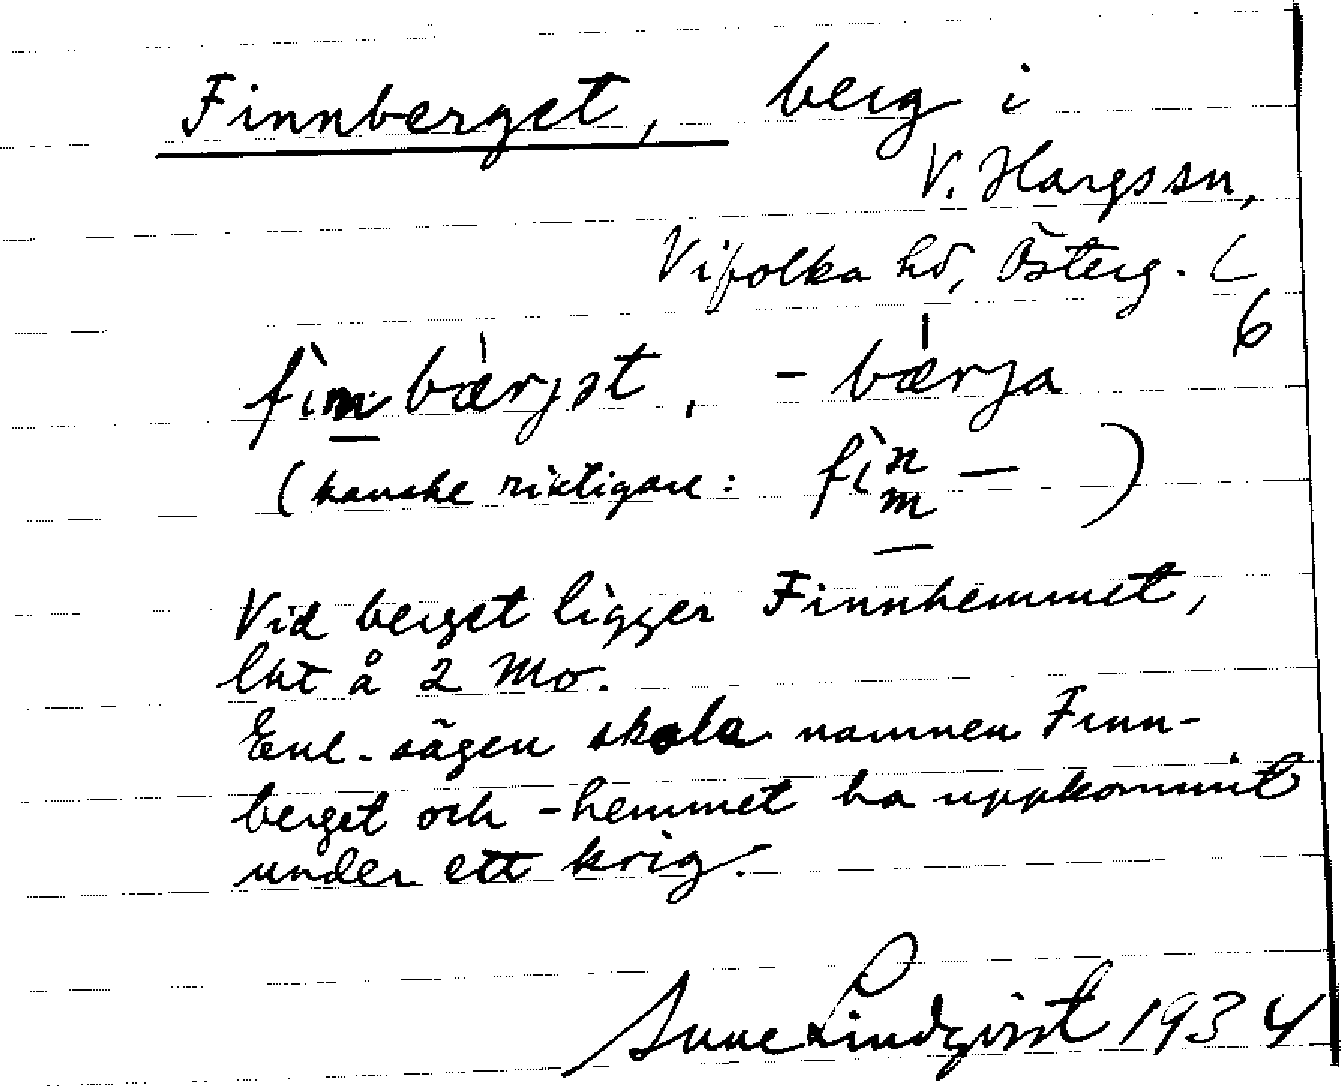 Finnberget, berg i
V. Hargssn,
Vifolka hd, Österg. L
6
fìmbærjət, -bærja
(kanske riktigare: fìnm— )
Vid berget ligger Finnhemmet,
lht å 2 Mo.
Enl. sägen skola namnen Finn-
berget och -hemmet ha uppkommit
under ett krig.
Sune Lindqvist 1934